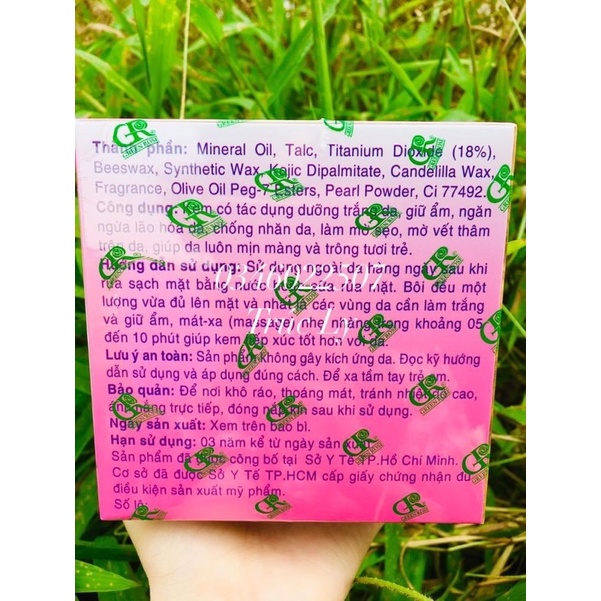 Thành phần: Mineral Oil, Talc, Titanium Dioxide (18%),
Beeswax, Synthetic Wax, Kojic Dipalmitate, Candelilla Wax,
Fragrance, Olive Oil Peg-7 Esters, Pearl Powder, Ci 77492.
Công dụng: Kem có tác dụng dưỡng trắng da, giữ ẩm, ngăn
ngừa lão hóa da, chống nhăn da, làm mờ sẹo, mờ vết thâm
trên da, giúp da luôn mịn màng và trông tươi trẻ.
Hướng dẫn sử dụng: Sử dụng ngoài da hằng ngày sau khi
rửa sạch mặt bằng nước hoặc sữa rửa mặt. Bôi đều một
lượng vừa đủ lên mặt và nhất là các vùng da cần làm trắng
và giữ ẩm, mát-xa (massage) nhẹ nhàng trong khoảng 05
đến 10 phút giúp kem tiếp xúc tốt hơn với da.
Lưu ý an toàn: Sản phẩm không gây kích ứng da. Đọc kỹ hướng
dẫn sử dụng và áp dụng đúng cách. Để xa tầm tay trẻ em.
Bảo quản: Để nơi khô ráo, thoáng mát, tránh nhiệt độ cao,
ánh nắng trực tiếp, đóng nắp kín sau khi sử dụng.
Ngày sản xuất: Xem trên bao bì.
Hạn sử dụng: 03 năm kể từ ngày sản xuất.
Sản phẩm đã được công bố tại Sở Y Tế TP.Hồ Chí Minh.
Cơ sở đã được Sở Y Tế TP.HCM cấp giấy chứng nhận đủ
điều kiện sản xuất mỹ phẩm.
Số lô:
GR
GREEN ROSE
Trúc Ly